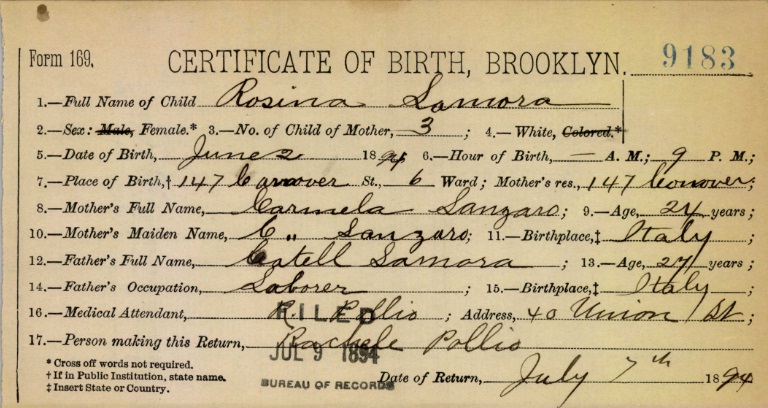 Form 169. CERTIFICATE OF BIRTH, BROOKLYN. 9183
1.—Full Name of Child Rosina Samora
2.—Sex: Male, Female.* 3.—No. of Child of Mother, 3 ; 4.—White, Colored.*
5.—Date of Birth, June 2 1894 6.—Hour of Birth, — A. M.; 9 P. M.;
7.—Place of Birth,† 147 Conover St., 6 Ward; Mother's res., 147 Conover;
8.—Mother's Full Name, Carmela Sanzaro; 9.—Age, 24 years;
10.—Mother's Maiden Name, C " Sanzaro; 11.—Birthplace,‡ Italy ;
12.—Father's Full Name, Catell Samora ; 13.—Age, 27 years;
14.—Father's Occupation, Laborer ; 15.—Birthplace,‡ Italy ;
16.—Medical Attendant, R. Pollio ; Address, 40 Union St ;
FILED
17.—Person making this Return, Rachele Pollio
JUL 9 1894
* Cross off words not required.
† If in Public Institution, state name.
‡ Insert State or Country.
BUREAU OF RECORDS
Date of Return, July 7th 1894